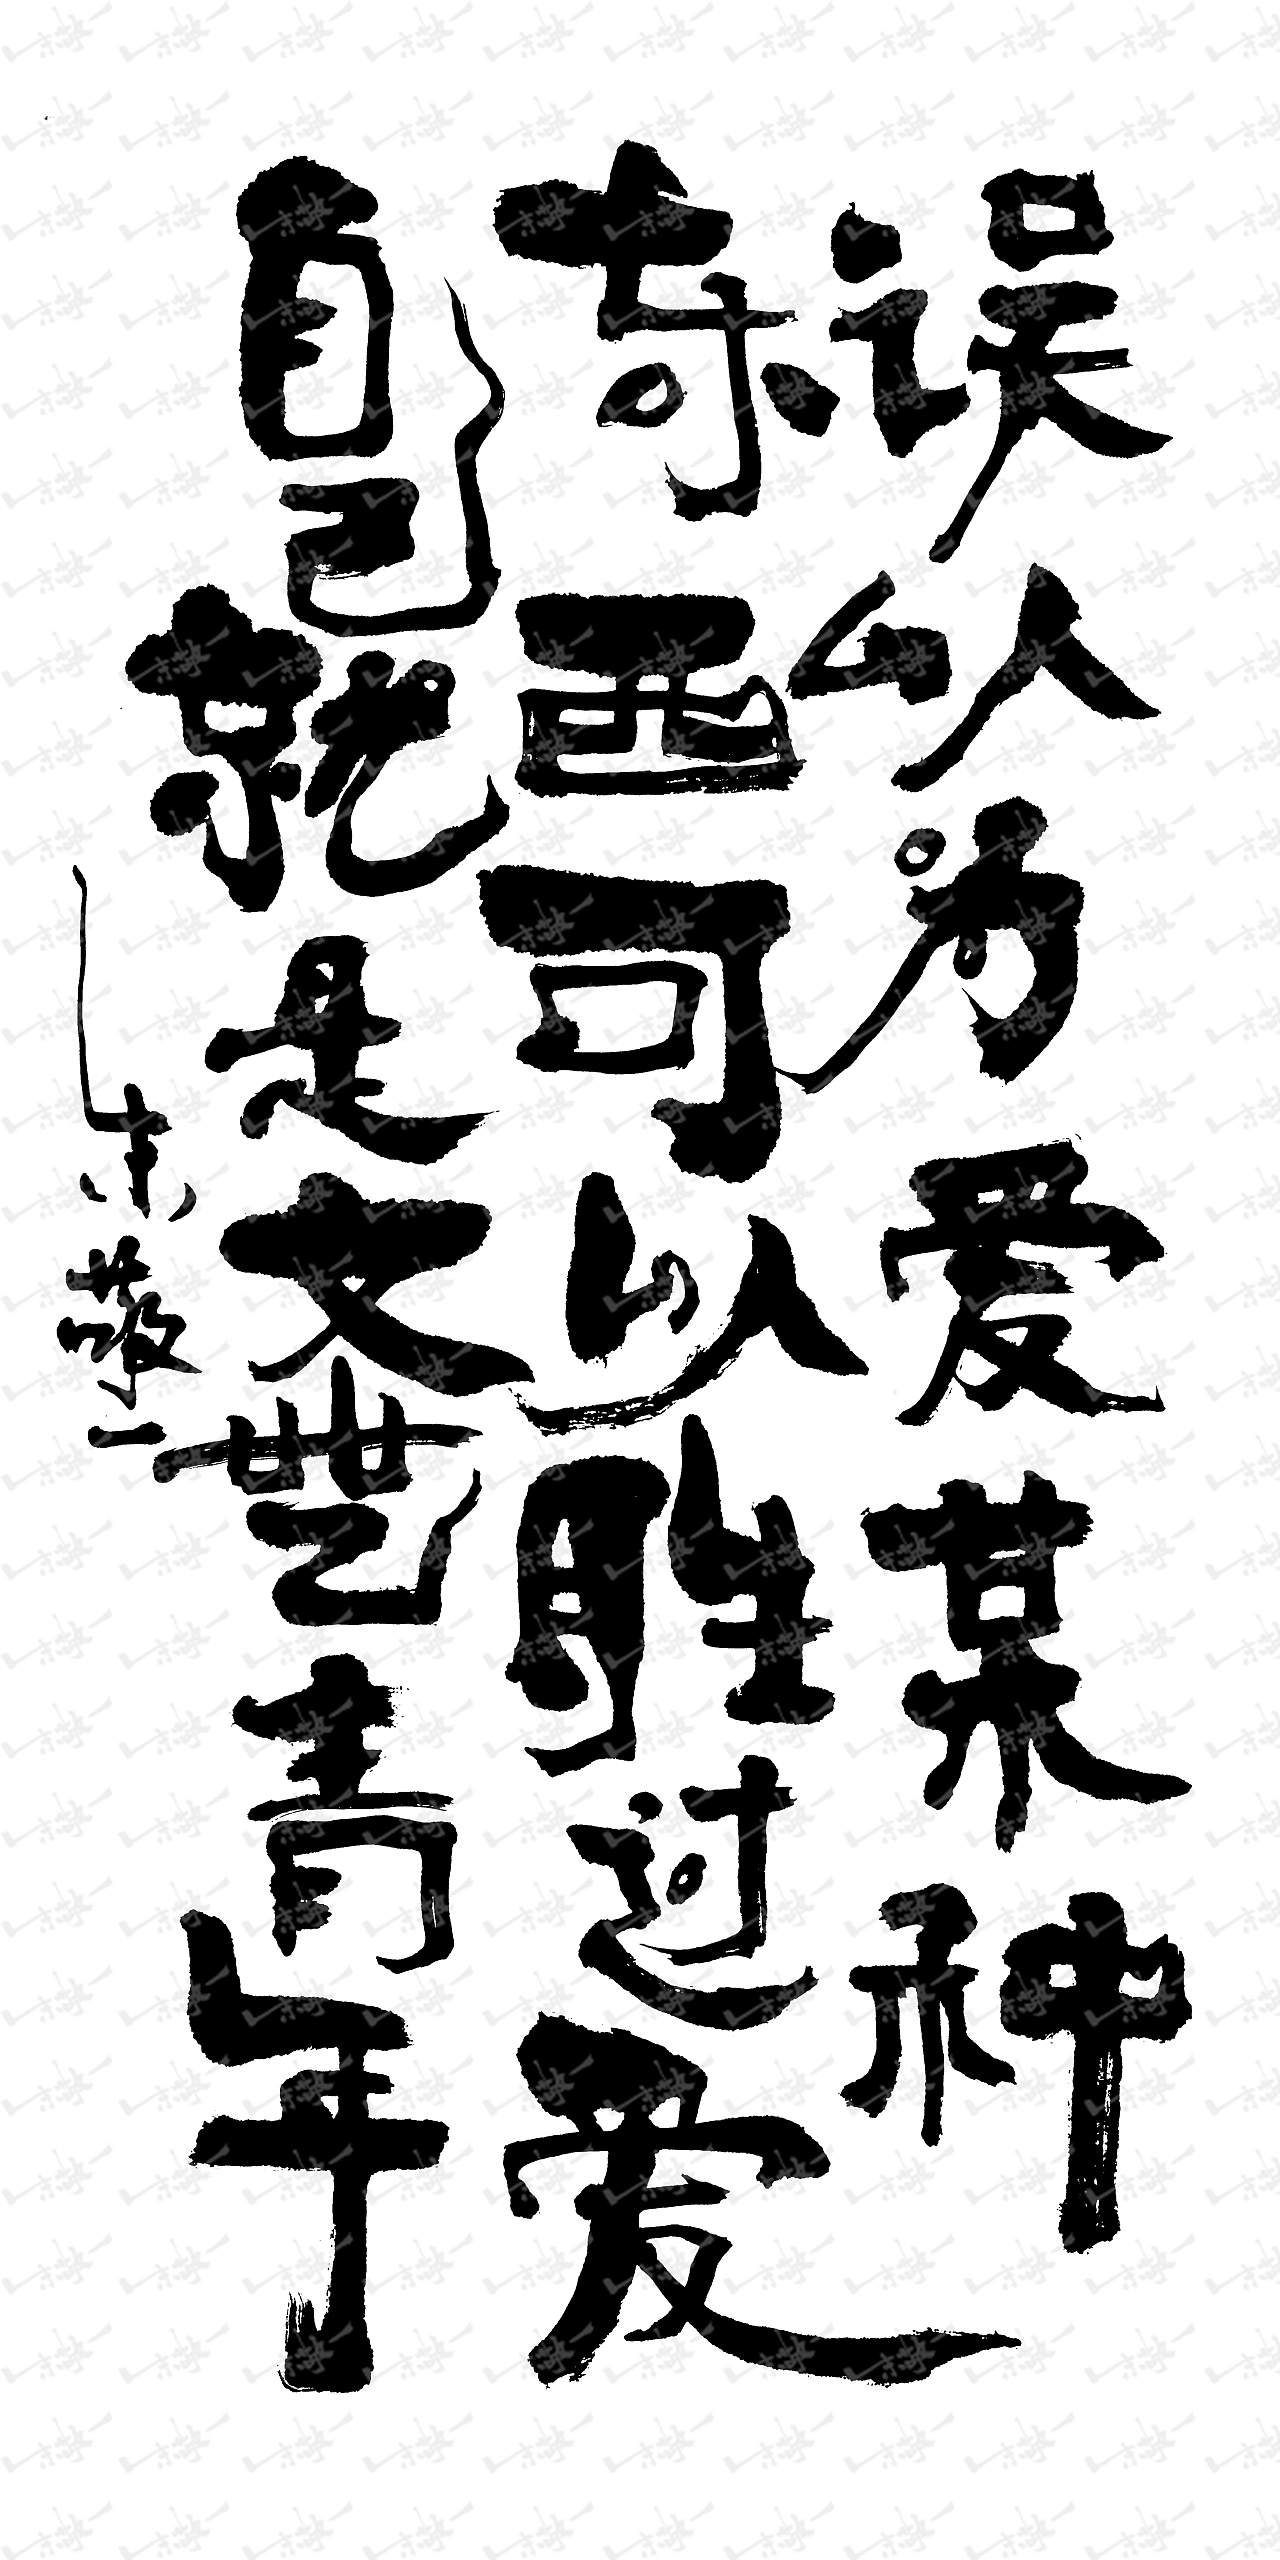 误以为爱某种
东西可以胜过爱
自己就是文艺青年
朱敬一